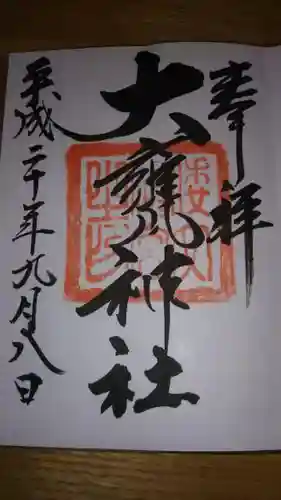 奉拝
大甕神社
平成二十年九月八日